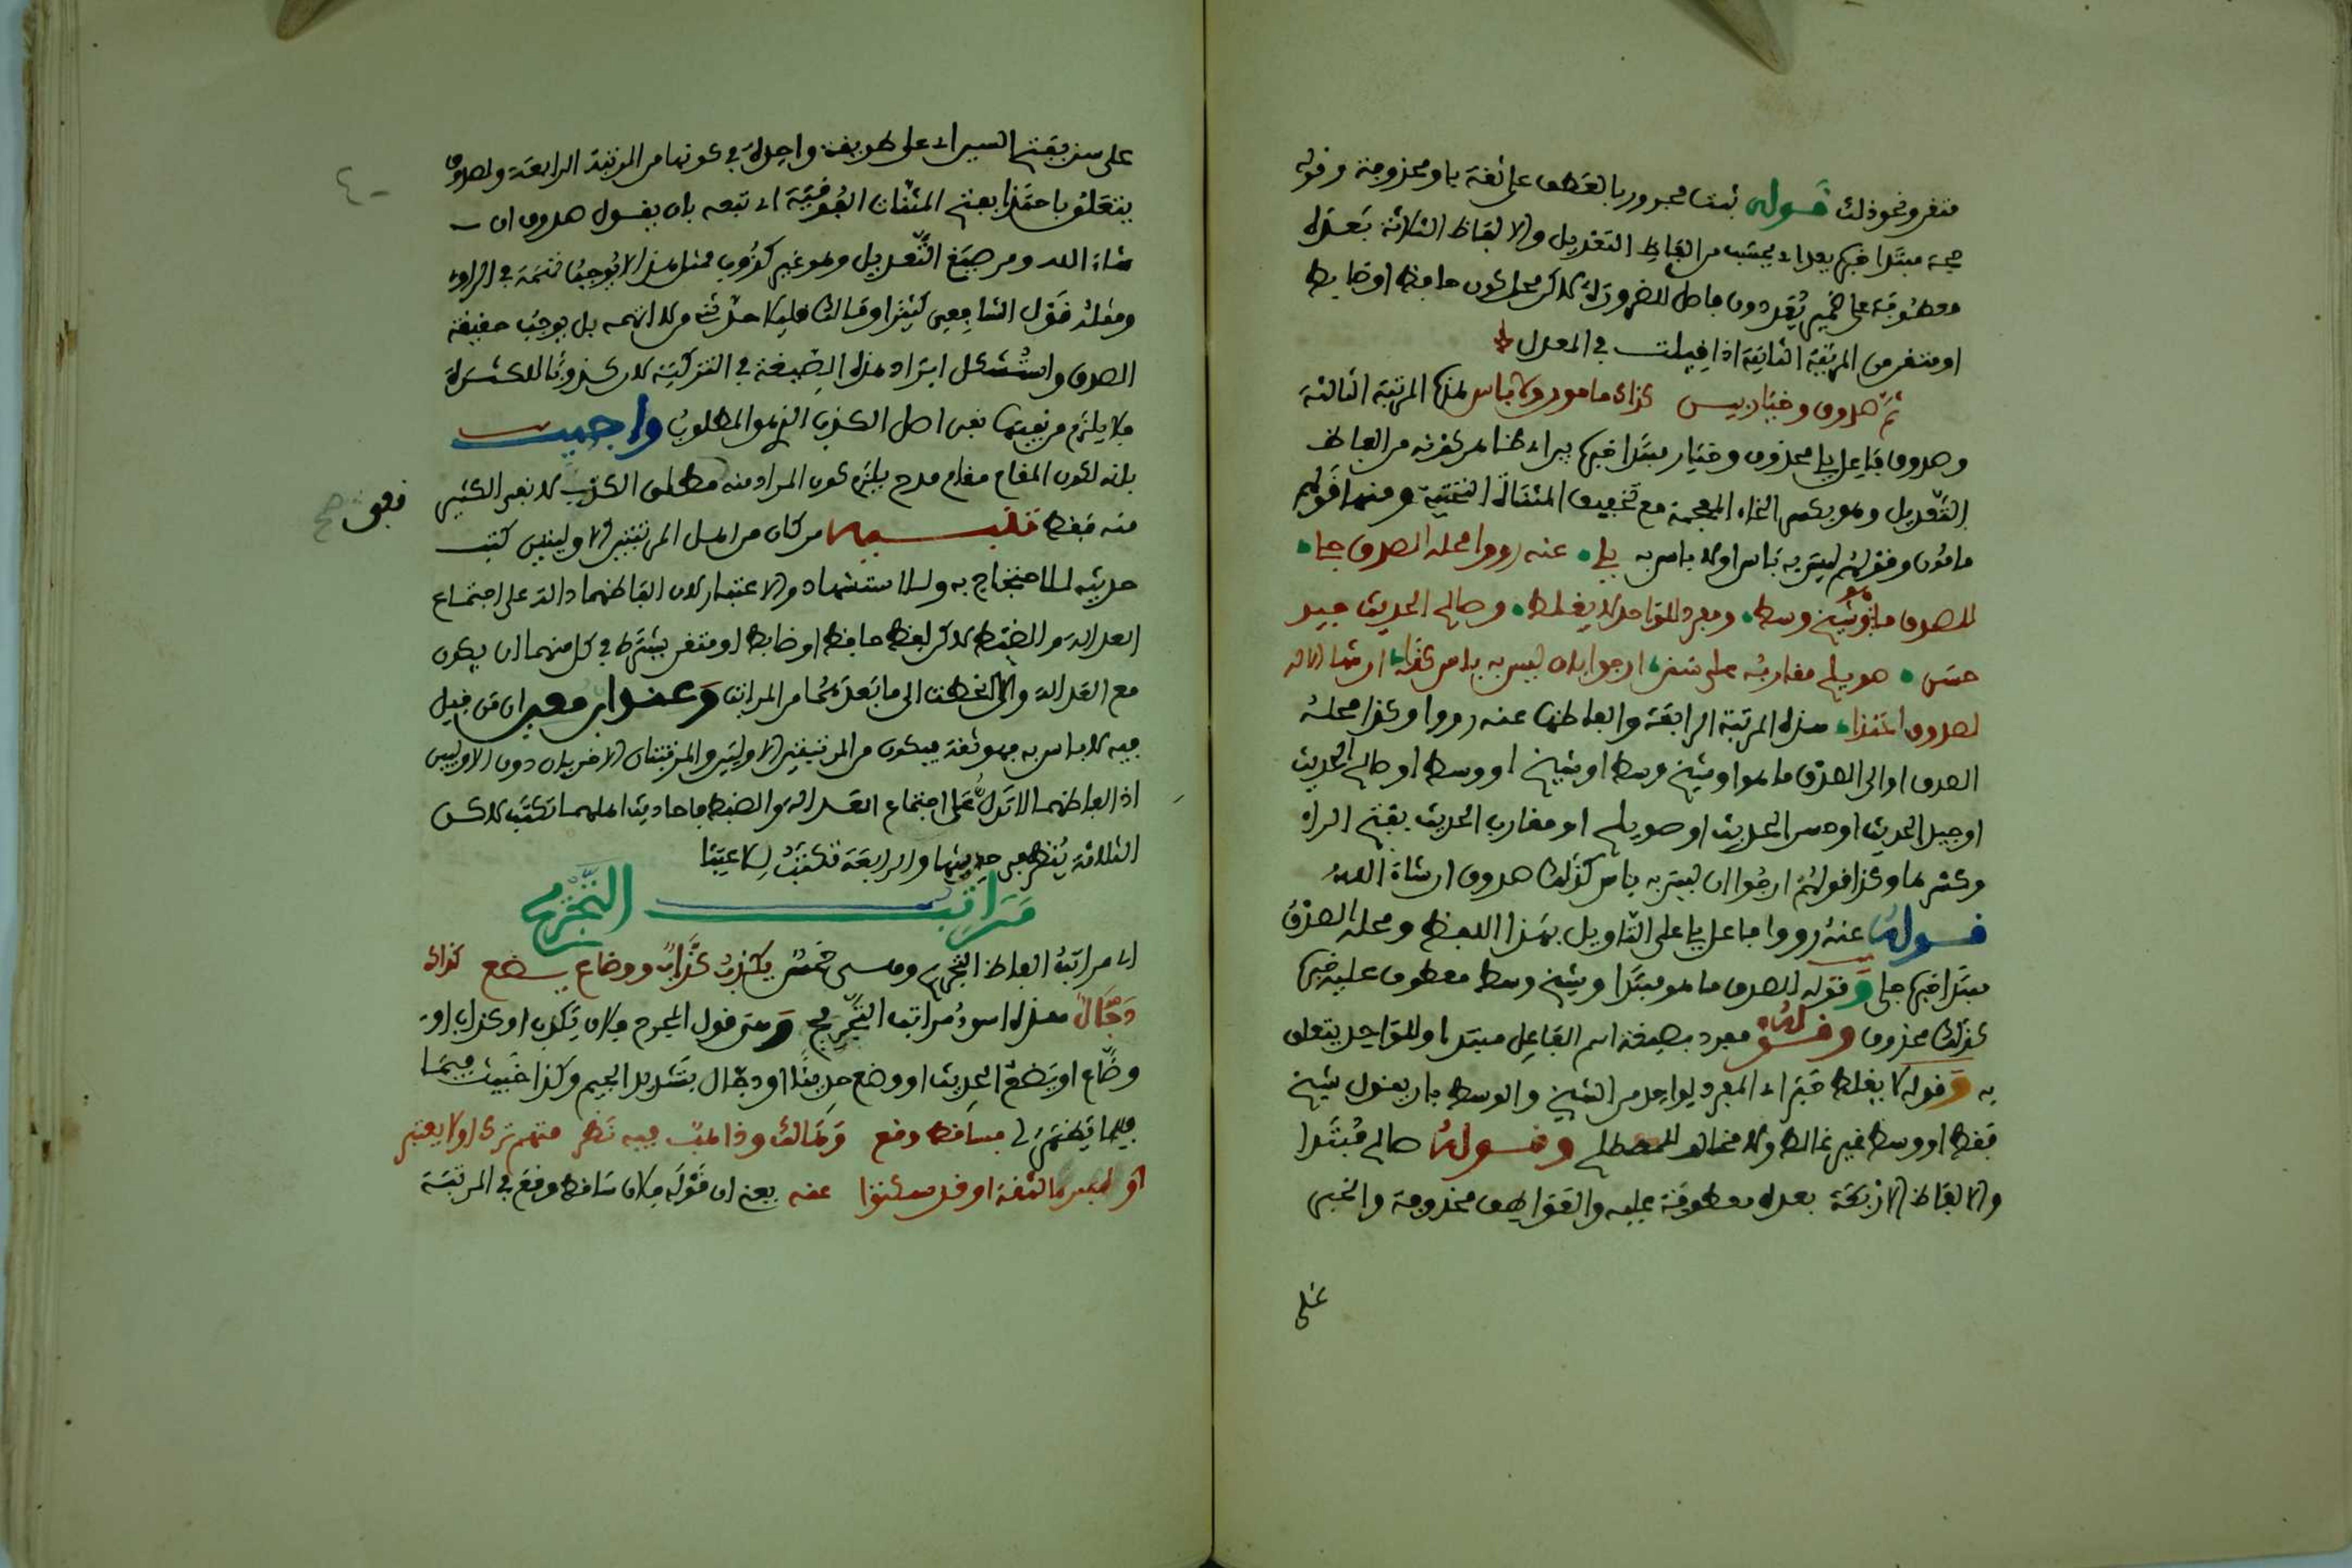 متقن ونحو ذلك قوله ثبت مجرور بالعطف على ثقة باو محذوفة وقوله
حجة مبتدا خبره يعد اي يحسب من الفاظ التعديل والالفاظ الثلاثة بعده
معطوفة على ضمير يعد دون فاصل للضرورة لاكن محل كون حافظ او ضابط
او متقن من المرتبة الثانية اذا قيلت في المعدل
ثم صدوق وخيار ليس كذاك مامون ولا باس لهذه المرتبة الثالثة
وصدوق فاعل يلي محذوف وخيار مبتدا خبره يراد هنا لمن يقرنه من الفاظ
التعديل وهو بكسر الخاء المعجمة مع تخفيف المثناة التحتية ومنها قولهم
مامون وقولهم ليس به باس او لا باس به يلي عنه رووا محله الصدق جلي
للصدق ما هو شيخ وسط ومفرد للواحد لا يغلط وصالح الحديث جيد
حسن صويلح مقاربه على سنن ارجو بان ليس به باس كذا ان شا الاله
صدوق احتذا هذه المرتبة الرابعة والفاظها عنه رووا وكذا محله
الصدق او الى الصدق ما هو او شيخ وسط او شيخ او وسط او صالح الحديث
او جيد الحديث او حسن الحديث او صويلح او مقارب الحديث بفتح الراء
وكسرها وكذا قولهم ارجوا ان ليس به باس كذلك صدوق ان شاء الله
قوله عنه رووا فاعل يلي على التاويل بهذا اللفظ ومحله الصدق
مبتدا خبره جلي وقوله للصدق ما هو مبتدا وشيخ وسط معطوف عليه خبره
كذلك محذوف وقوله مفرد بصيغة اسم الفاعل مبتدا وللواحد يتعلق
به وقوله لا يغلط خبر اي المفرد لواحد من الشيخ والوسط بان يقول شيخ
فقط او وسط غير غالط ولا مخالف للمصطلح وقوله صالح مبتدا
والالفاظ الاربعة بعده معطوفة عليه والعواطف محذوفة والخبر
على
على سنن بفتح السين اي على طريقة واحدة في كونها من المرتبة الرابعة وصدوق
يتعلق باحتذا بفتح المثناة الفوقية اي تبعه بان يقول صدوق ان
شاء الله ومن صيغ التعديل وهو غير كذوب فمثل هذا لا يوجب تهمة في الراوي
ومثله قول الشافعي كثيرا ومالك قليلا حدثني من لا اتهمه بل يوجب حقيقة
الصدق واستشكل ايراد هذه الصيغة في التزكية لان كذوبا للكثرة
فلا يلزم من نفيها نفي اصل الكذب الذي هو المطلوب واجيب
بانه لكون المقام مقام مدح يلزم كون المراد منه مطلق الكذب لا نفي الكثير
منه فقط تنبيه من كان من اهل المرتبتين الاوليين كتب
حديثه للاحتجاج به وللاستشهاد والاعتبار لان الفاظهما دالة على اجتماع
العدالة والضبط لاكن لفظ حافظ او ضابط او متقن يشترط في كل منهما ان يكون
مع العدالة والا انحطت الى ما بعدها من المراتب وعند ابن معين ان من قيل
فيه لا باس به فهو ثقة فيكون من المرتبتين الاوليين والمرتبتان الاخريان دون الاوليين
اذ الفاظهما لا تدل على اجتماع العدالة والضبط فاحاديث اهلهما تكتب لاكن
الثلاثة ينظر في حديثها والرابعة تكتب للاعتبا
مراتب التجريح
اي مراتب الفاظ التجريح وهي خمس يكذب كذاب ووضاع يضع كذاك
دجال هذه اسوء مراتب التجريح وهي قول المجرح فلان يكذب او كذاب او
وضاع او يضع الحديث او وضع حديثا او دجال بتشديد الجيم وكذا خبيث فيما
فيما يظهر لي فساقط وقع وهالك وذاهب فيه نظر متهم ترك او لا يعتبر
او ليس بالثقة او قد سكتوا عنه يعني ان قوله فلان ساقط وقع في المرتبة